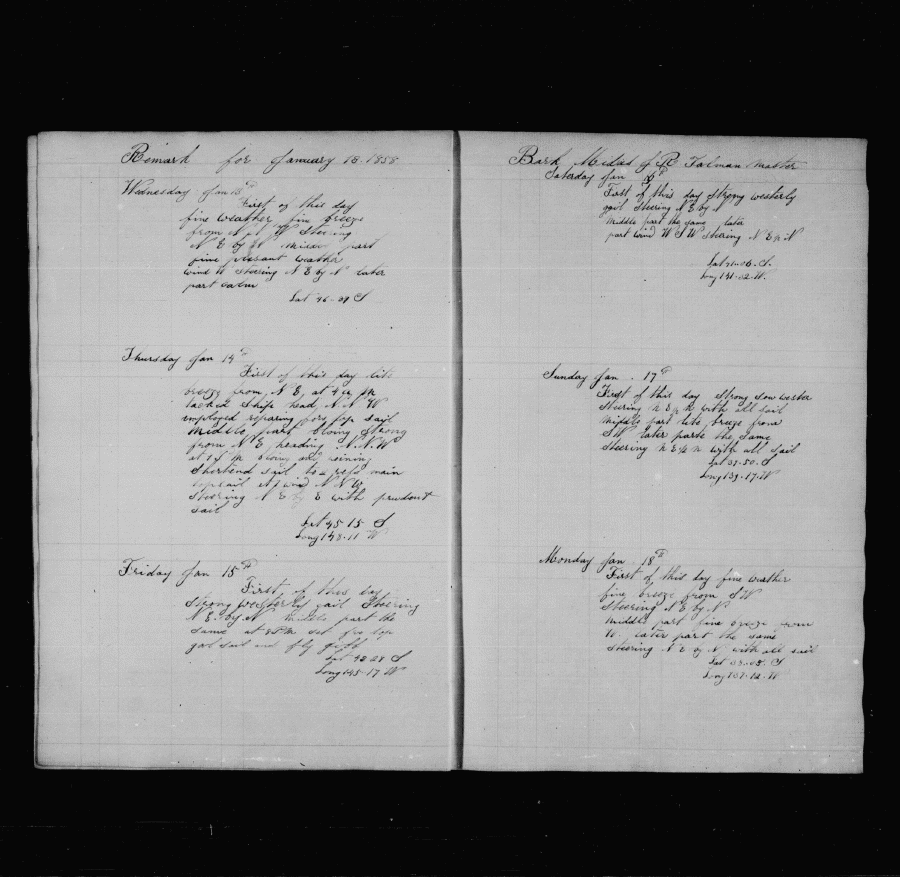 Remark for January 13 1858
Wednesday Jan 13th
First of this day
fine weather fine breeze
from N W Steering
N E by N middle part
fine plesant weather
wind W Steering N E by N later
part calm
Lat 46-09 S
Thursday Jan 14th
First of this day lite
breeze from N E, at 4 P M
tacked Ship head, N N W
imployed reparing fore top sail
Middle part blowing Strong
from N E heading N.N.W
at P M
Shortend sail to reefd main
topsail wind N N W
Steering N E by E with prudent
sail
Lat 45 15 S
Long 148-11 W
Friday Jan 15th
First of this day
strong westerly gail Steering
N E by N middle part the
same at 8 P M set fore top
gall sail and fly
Lat 43-08 S
Long 145-17 W
Bark of Talman Master
Saterday Jan 16th
First of this day Strong westerly
gail Steering N E by N
middle part the same later
part wind W S W steering N E by N
Lat 41-06 S.
Long 141-02 W.
Sunday Jan. 17th
First of this day Strong Sou wester
Steering N E by N with all sail
middle part lite breeze from
S W later parte the same
Steering N E by N with all sail
Lat 39-50 S
Long 139-17 W
Monday Jan 18th
First of this day fine weather
fine breeze from S W
Steering N E by N
middle part fine breeze from
W. later part the same
Steering N E by N with all sail
Lat 38-05 S
Long 137-12 W